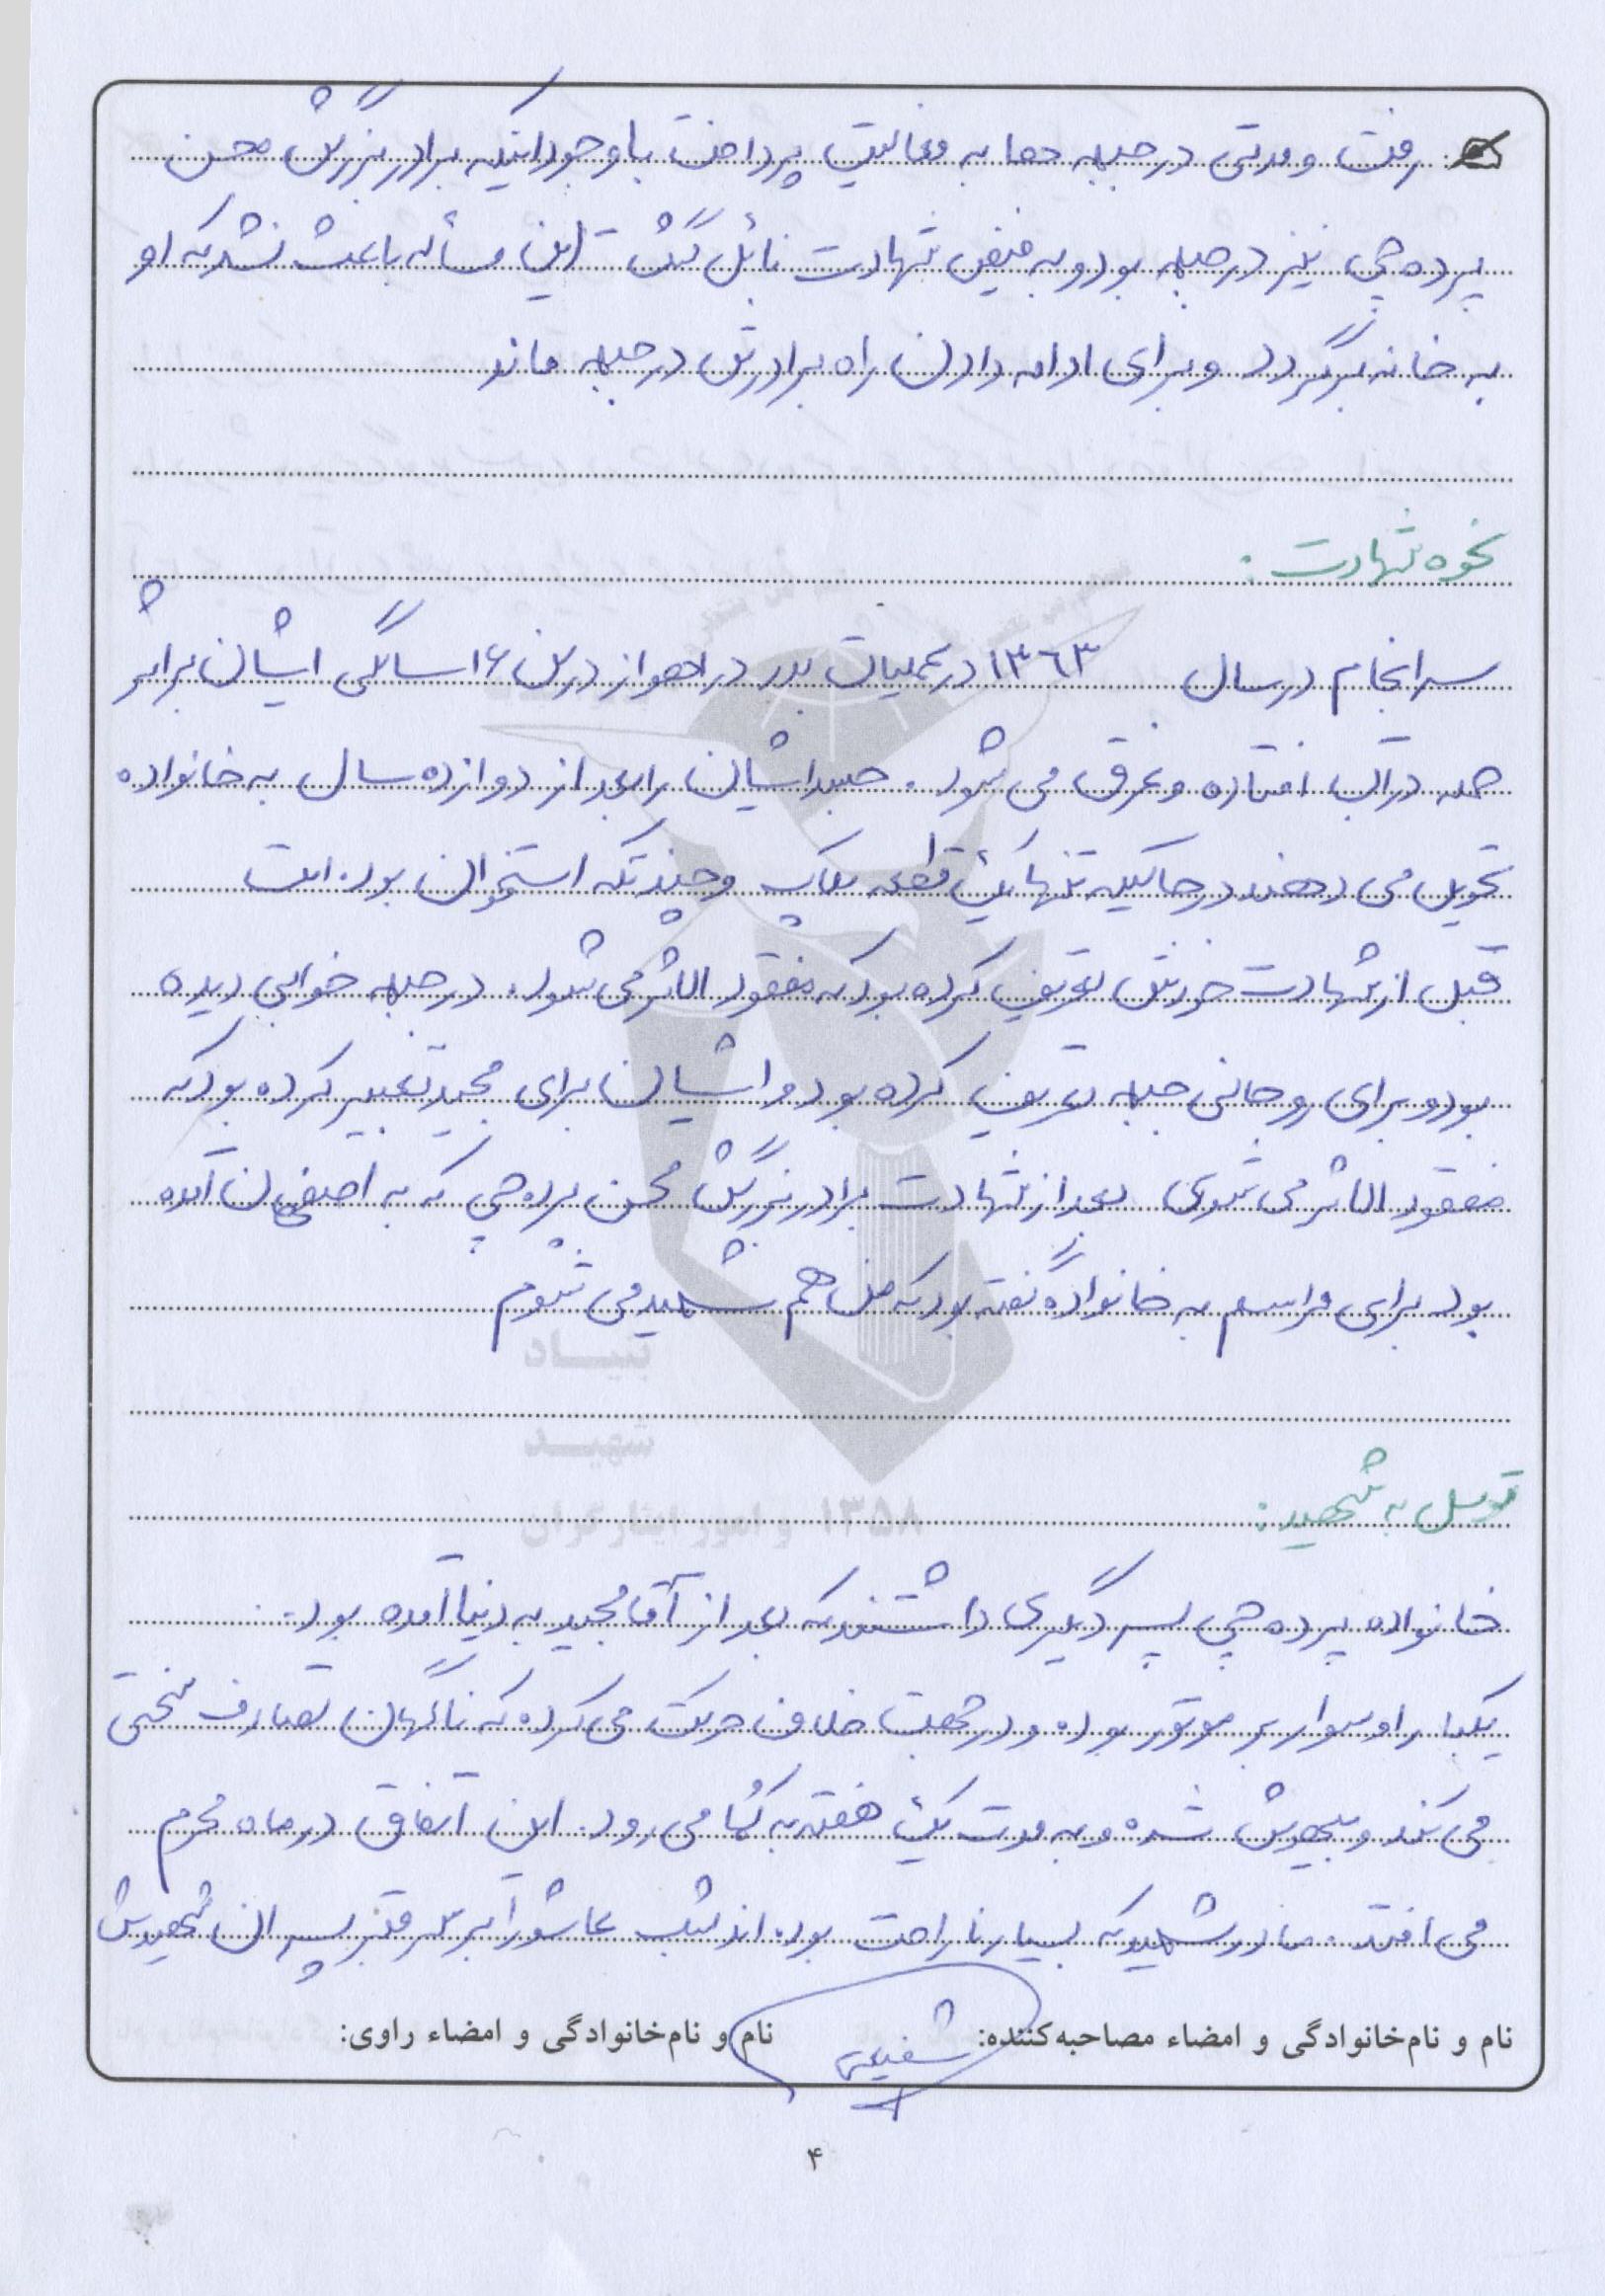 رفت و مدتی در جبهه ها به فعالیت پرداخت با وجود اینکه برادر بزرگش محسن
پرده چی نیز در جبهه بود و به فیض شهادت نائل گشت این مسأله باعث نشد که او
به خانه برگردد و برای ادامه دادن راه برادرش در جبهه ماند
نحوه شهادت :
سرانجام در سال ۱۳۶۳ در عملیات بدر در اهواز در سن ۱۶ سالگی ایشان بر اثر
حمله در آب افتاده و غرق می شود . جسد ایشان را بعد از دوازده سال به خانواده
تحویل می دهند در حالیکه تنها یک قطعه پلاک و چند تکه استخوان بوده است
قبل از شهادت خودش تعریف کرده بود که مفقود الاثر می شود . در جبهه خوابی دیده
بود و برای روحانی جبهه تعریف کرده بود و ایشان برای مجید تعبیر کرده بود که
مفقود الاثر می شوی بعد از شهادت برادر بزرگش محسن پرده چی که به اصفهان آمده
بود برای مراسم به خانواده گفته بود که من هم شهید می شوم
توسل به شهید :
خانواده پرده چی پسر دیگری داشتند که بعد از آقا مجید به دنیا آمده بود .
یکبار او سوار بر موتور بوده و در جهت خلاف حرکت می کرده که ناگهان تصادف سختی
می کند و بیهوش شده و به مدت یک هفته به کُما می رود . این اتفاق در ماه محرم
می افتد . مادر شهید که بسیار ناراحت بوده اند شب عاشورا بر سر قبر پسران شهیدش
نام و نام‌خانوادگی و امضاء مصاحبه‌کننده: شفیعی نام و نام‌خانوادگی و امضاء راوی:
۴
بنیاد
شهید
و امور ایثارگران ۱۳۵۸